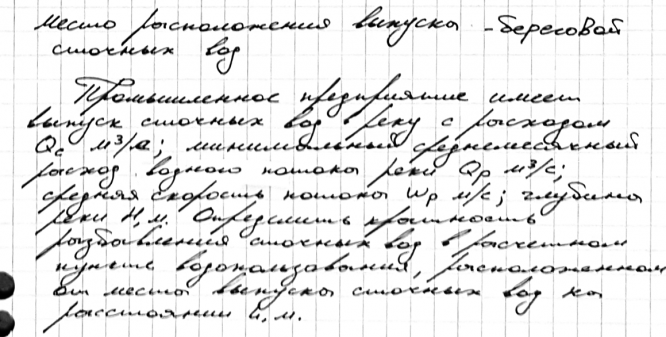 Место расположения выпуска - береговой
сточных вод
Промышленное предприятие имеет
выпуск сточных вод в реку с расходом
Qс м³/с; минимальный среднемесячный
расход водного потока реки Qр м³/с;
средняя скорость потока wр м/с; глубина
реки H, м. Определить кратность
разбавления сточных вод в расчетном
пункте водопользования, расположенном
от места выпуска сточных вод на
расстоянии L, м.